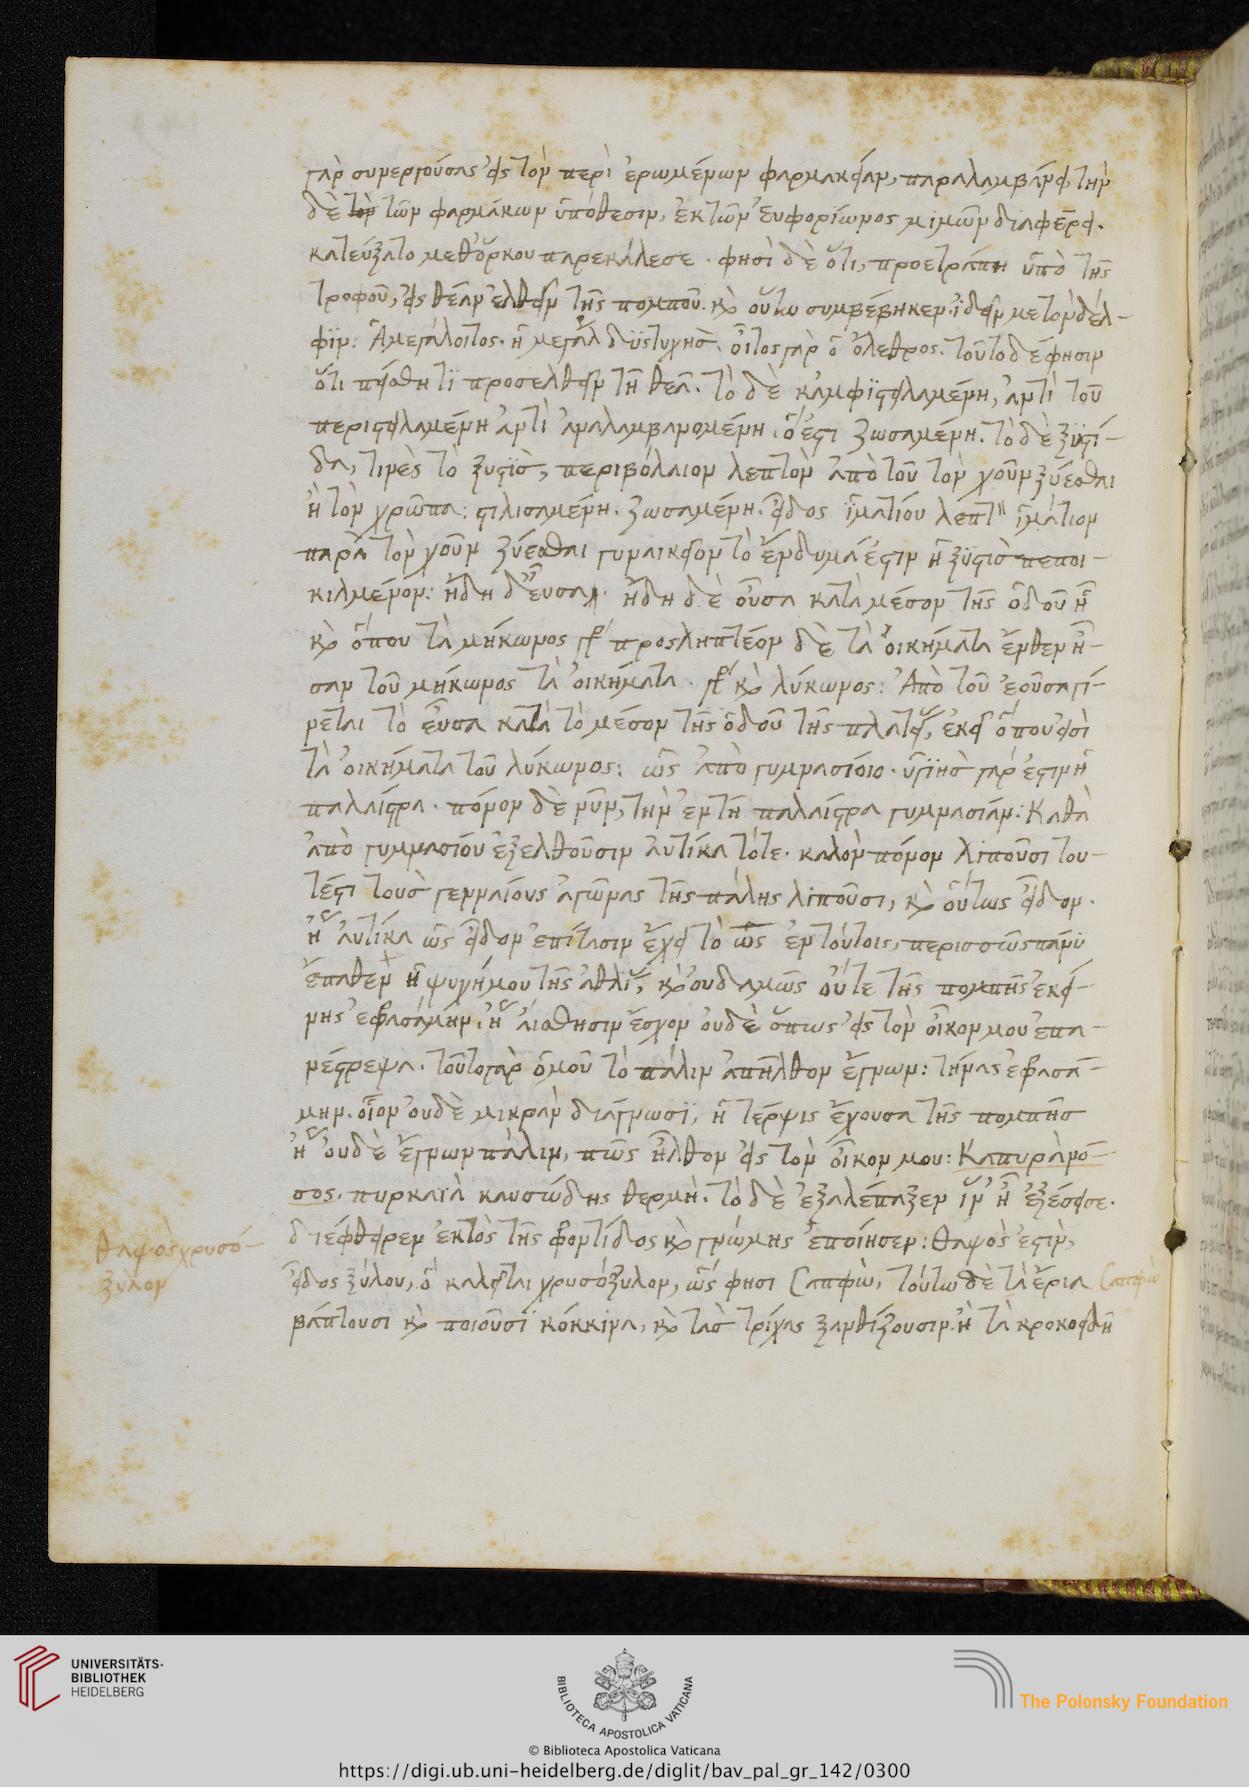 γὰρ συνεργούσας εἰς τὸν περὶ ἐρωμένων φαρμακείαν, παραλαμβάνει, τὴν
δὲ τῶν φαρμάκων ὑπόθεσιν, ἐκ τῶν εὐφορίωνος μίμων διαφέρει.
κατεύξατο μεθ' ὅρκου παρεκάλεσε. φησὶ δὲ ὅτι, προετράπη ὑπὸ τῆς
τροφοῦ, εἰς θέαν ἐλθεῖν τῆς πομποῦ. καὶ οὕτω συμβέβηκεν ἰδεῖν με τὸν δέλ-
φιν: Ἁ μεγάλοιτος. ἡ μεγάλ δυστυχησ. οἶτος γὰρ ὁ ὄλεθρος. τοῦτο δέ φησιν
ὅτι πείσθητι προσελθεῖν τῇ θεᾷ. τὸ δὲ κἀμφιστειλαμένη, ἀντὶ τοῦ
περιστειλαμένη ἀντὶ ἀναλαμβανομένη. ὅ ἐστι ζωσαμένη. τὸ δὲ ξυστί-
δα, τινὲς τὸ ξυστὶς, περιβόλαιον λεπτὸν ἀπὸ τοῦ τὸν χοῦν ξύεσθαι
ἢ τὸν χρῶπα: στιλισαμένη. ζωσαμένη. εἶδος ἱματίου λεπτ ἱμάτιον
παρὰ τὸν χοῦν ξύεσθαι γυναικεῖον τὸ ἔνδυμά ἐστιν ἡ ξυστὶσ πεποι-
κιλμένον: ἤδη δ' εὖσα. ἤδη δὲ οὖσα κατὰ μέσον τῆς ὁδοῦ ἦ
καὶ ὅπου τὰ μήκωνος γρ προσληπτέον δὲ τὰ οἰκήματα ἔνθεν ἦ-
σαν τοῦ μήκωνος τὰ οἰκήματα. γρ καὶ λύκωνος: Ἀπὸ τοῦ ἐοῦσα γί-
νεται τὸ εὖσα κατὰ τὸ μέσον τῆς ὁδοῦ τῆς πλατείας, ἐκεῖ ὅπου εἰσὶ
τὰ οἰκήματα τοῦ λύκωνος: ὡς ἀπὸ γυμνασίοιο. ὑγιὴσ γάρ ἐστιν ἡ
παλαίστρα. πόνον δὲ νῦν, τὴν ἐν τῇ παλαίστρα γυμνασίαν: Καθὰ
ἀπὸ γυμνασίου ἐξελθοῦσιν αὐτίκα τότε. καλὸν πόνον λιποῦσι του-
τέστι τοὺσ γενναίους ἀγῶνας τῆς πάλης λιποῦσι, καὶ οὕτως εἶδον.
ἢ αὐτίκα ὡς εἶδον ἐπίτασιν ἔχει τὸ ὡς ἐν τούτοις, περισσῶς πάνυ
ἔπαθεν ἡ ψυχή μου τῆς ἀθλίας, καὶ οὐδαμῶς οὔτε τῆς πομπῆς ἐκεί-
νης ἐφρασάμην. ἢ αἴσθησιν ἔσχον οὐδὲ ὅπως εἰς τὸν οἶκον μου ἐπα-
νέστρεψα. τοῦτο γὰρ ὁμοῦ τὸ πάλιν ἀπῆλθον ἔγνων: τήνας ἐφρασά-
μην. οἷον οὐδὲ μικρὰν διάγνωσϊ, ἡ τέρψις ἔχουσα τῆς πομπῆσ
ἢ οὐδὲ ἔγνων πάλιν, πῶς ἦλθον εἰς τὸν οἶκον μου: Καπυρὰ νό-
σος. πυρκαϊὰ καυσώδης θερμὴ. τὸ δὲ ἐξαλέπαξεν ἵν' ἦ ἐξέσεισε.
διέφθειρεν ἐκτὸς τῆς φροντίδος καὶ γνώμης ἐποίησεν: Θάψος ἐστὶν,
εἶδος ξύλου, ὃ καλεῖται χρυσόξυλον, ὥς φησι Σαπφὼ, τούτω δὲ τὰ ἔρια
βάπτουσι καὶ ποιοῦσϊ κόκκινα, καὶ τὰσ τρίχας ξανθίζουσιν. ἢ τὰ κροκοειδῆ
θάψος χρυσό-
ξυλον
Σαπφὼ
UNIVERSITÄTS-
BIBLIOTHEK
HEIDELBERG
BIBLIOTECA APOSTOLICA VATICANA
The Polonsky Foundation
© Biblioteca Apostolica Vaticana
https://digi.ub.uni-heidelberg.de/diglit/bav_pal_gr_142/0300